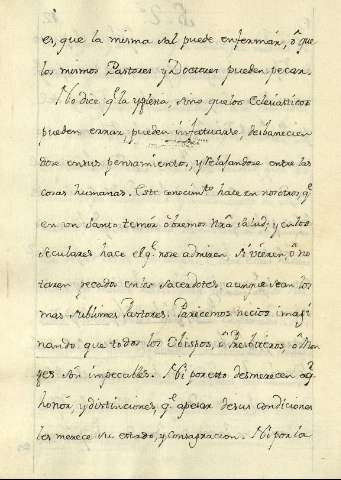 es, que la misma sal puede enfermar, ô que
los mismos Pastores y Doctores pueden pecar.
No dice q.e la yglesia, sino que los Eclesiasticos
pueden errar, pueden infectuarse, desbanecien
dose en sus pensamientos, y relajandose entre las
cosas humanas. Este conocim.to hace en nosotros, q.e
en un santo temor obremos ntra salud; y en los
seculares hace el q.e no se admiren, si vieren, ô no
taren pecados en los sacerdotes, aunque sean los
mas sublimes Pastores. Parecemos necios imagi
nando, que todos los Obispos, ô Presbiteros, ô Mon
ges son impecables. Ni por esto desmerecen aq.l
honor, y distinciones, q.e apesar de sus condiciones
les merece su estado, y consagracion. Ni por la